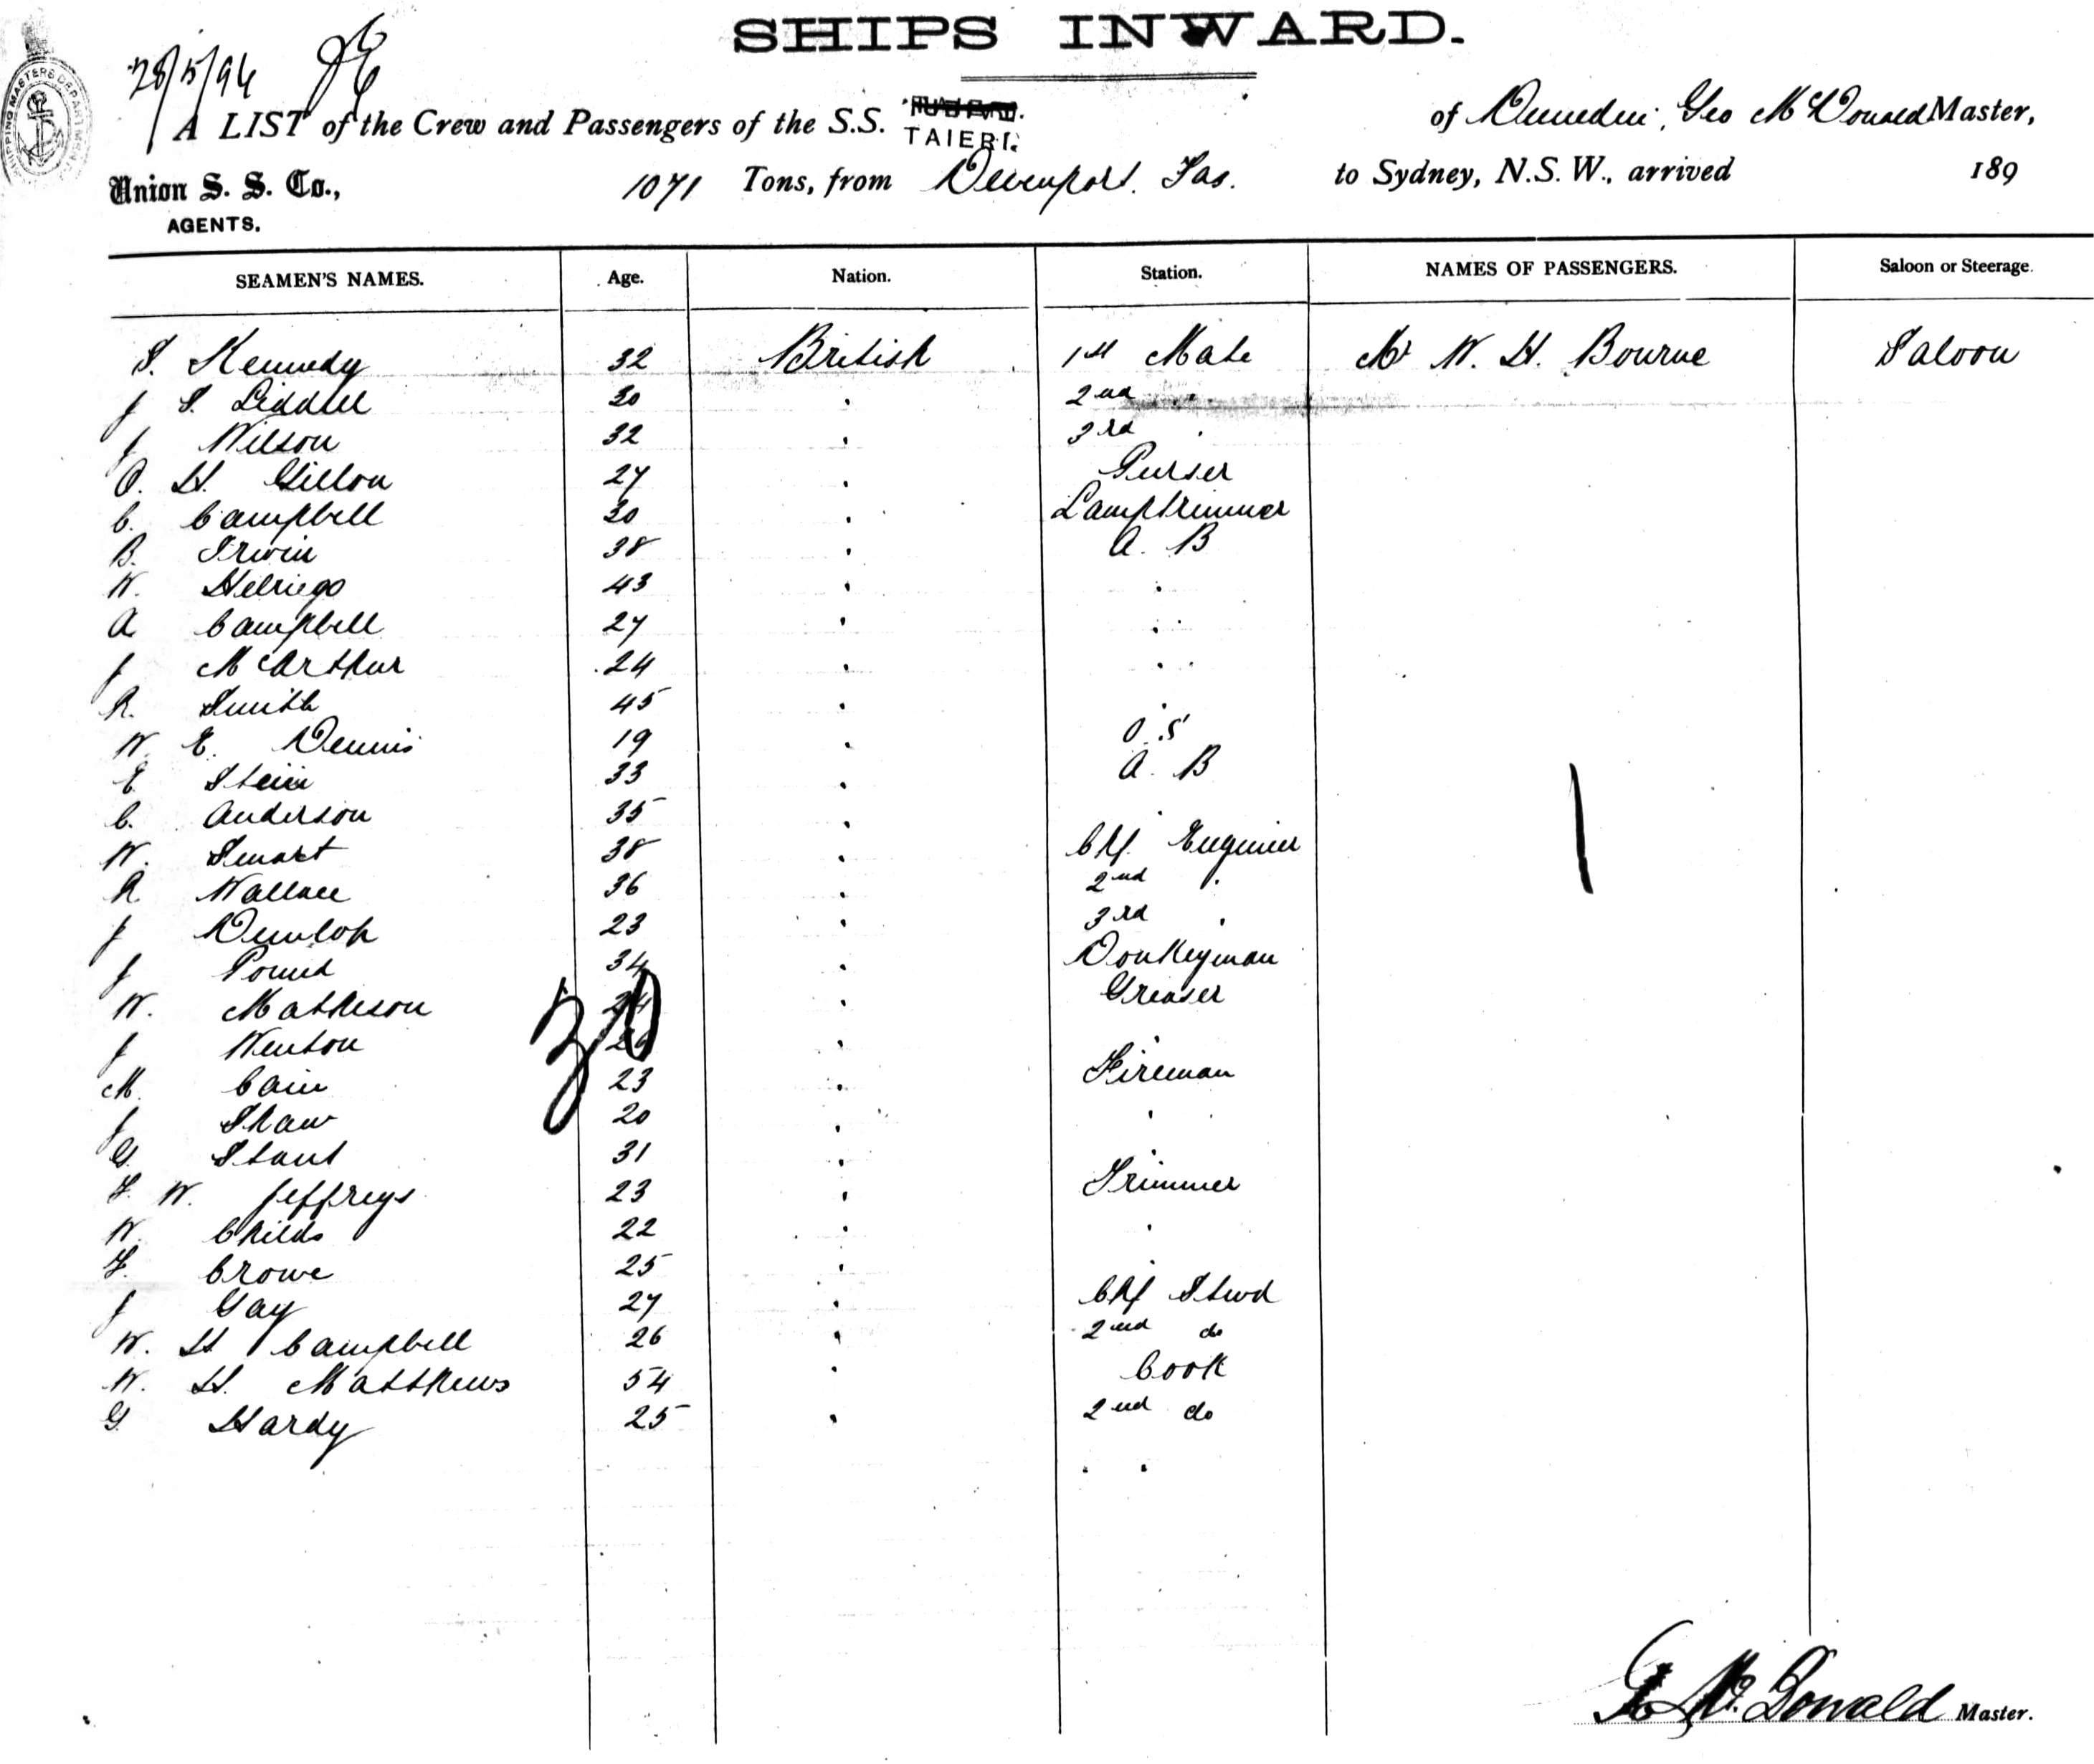 SHIPS INWARD.
28/5/96
A LIST of the Crew and Passengers of the S.S. TAIERI. of Dunedin, Geo McDonald Master,
Union S. S. Co., 1071 Tons, from Devenport. Tas. to Sydney, N.S.W., arrived 189
AGENTS.
SEAMEN'S NAMES. Age. Nation. Station. NAMES OF PASSENGERS. Saloon or Steerage.
S. Kennedy 32 British 1st Mate Mr W. H. Bourne Saloon
J S. Liddell 30 " 2nd "
J Wilson 32 " 3rd "
O. H. Gillon 27 " Purser
C. Campbell 30 " Lamptrimmer
B. Irwin 38 " A. B
W. Helriego 43 " "
A Campbell 27 " " "
J McArthur 24 " " "
R. Smith 45 " "
W. E. Dennis 19 " O.S
E Stein 33 " A. B
C. Anderson 35 " "
W. Smart 38 " Chf Enginier
R. Wallace 36 " 2nd "
J Dunlop 23 " 3rd "
J Pound 34 " Donkeyman
W. Matheson 24 " Greaser
J Wenton " "
M. Cain 23 " Fireman
J Shaw 20 " "
G. Stout 31 "
F. W. Jeffreys 23 " Trimmer
W. Childs 22 " "
F. Crowe 25 " "
J Gay 27 " Chf Stwd
W. H Campbell 26 " 2nd do
W. H. Matthews 54 " Cook
G Hardy 25 " 2nd do
" "
30
1
Geo McDonald Master.